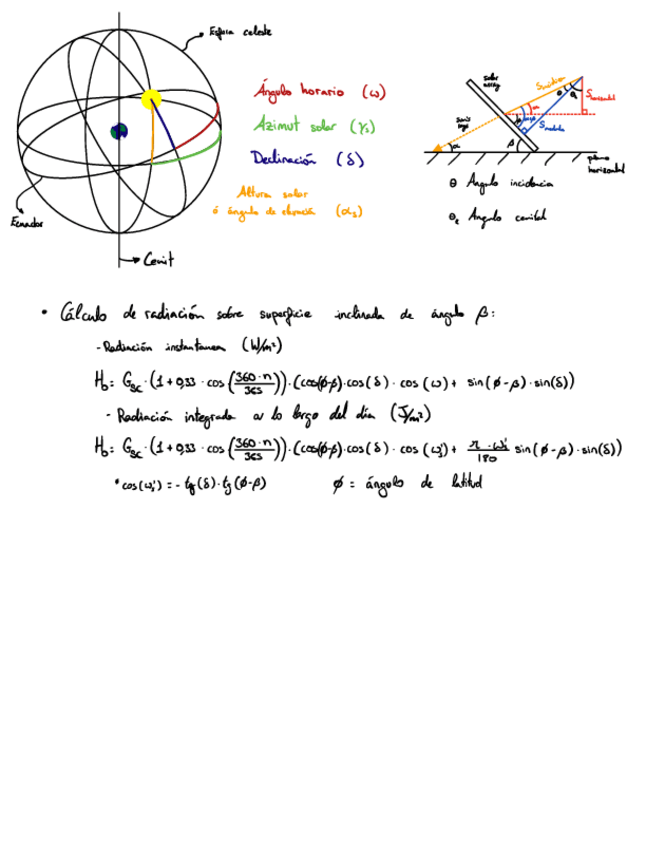 Esfera celeste
Ángulo horario (ω)
Azimut solar (γs)
Declinación (δ)
Altura solar
ó ángulo de elevación (αs)
Ecuador
Cenit
solar array
Sincidente
Shorizontal
Smodule
sun's rays
θ
α
β
plano horizontal
θ Angulo incidencia
θz Angulo cenital
• Cálculo de radiación sobre superficie inclinada de ángulo β:
- Radiación instantanea (W/m²)
H₀ = Gsc · (1 + 0,33 · cos(360·n/365)) · (cos(ϕ-β)·cos(δ) · cos(ω) + sin(ϕ-β)·sin(δ))
- Radiación integrada a lo largo del día (J/m²)
H₀ = Gsc · (1 + 0,33 · cos(360·n/365)) · (cos(ϕ-β)·cos(δ) · cos(ωs') + π·ωs'/180 sin(ϕ-β)·sin(δ))
• cos(ωs') = - tg(δ)·tg(ϕ-β) ϕ = ángulo de latitud